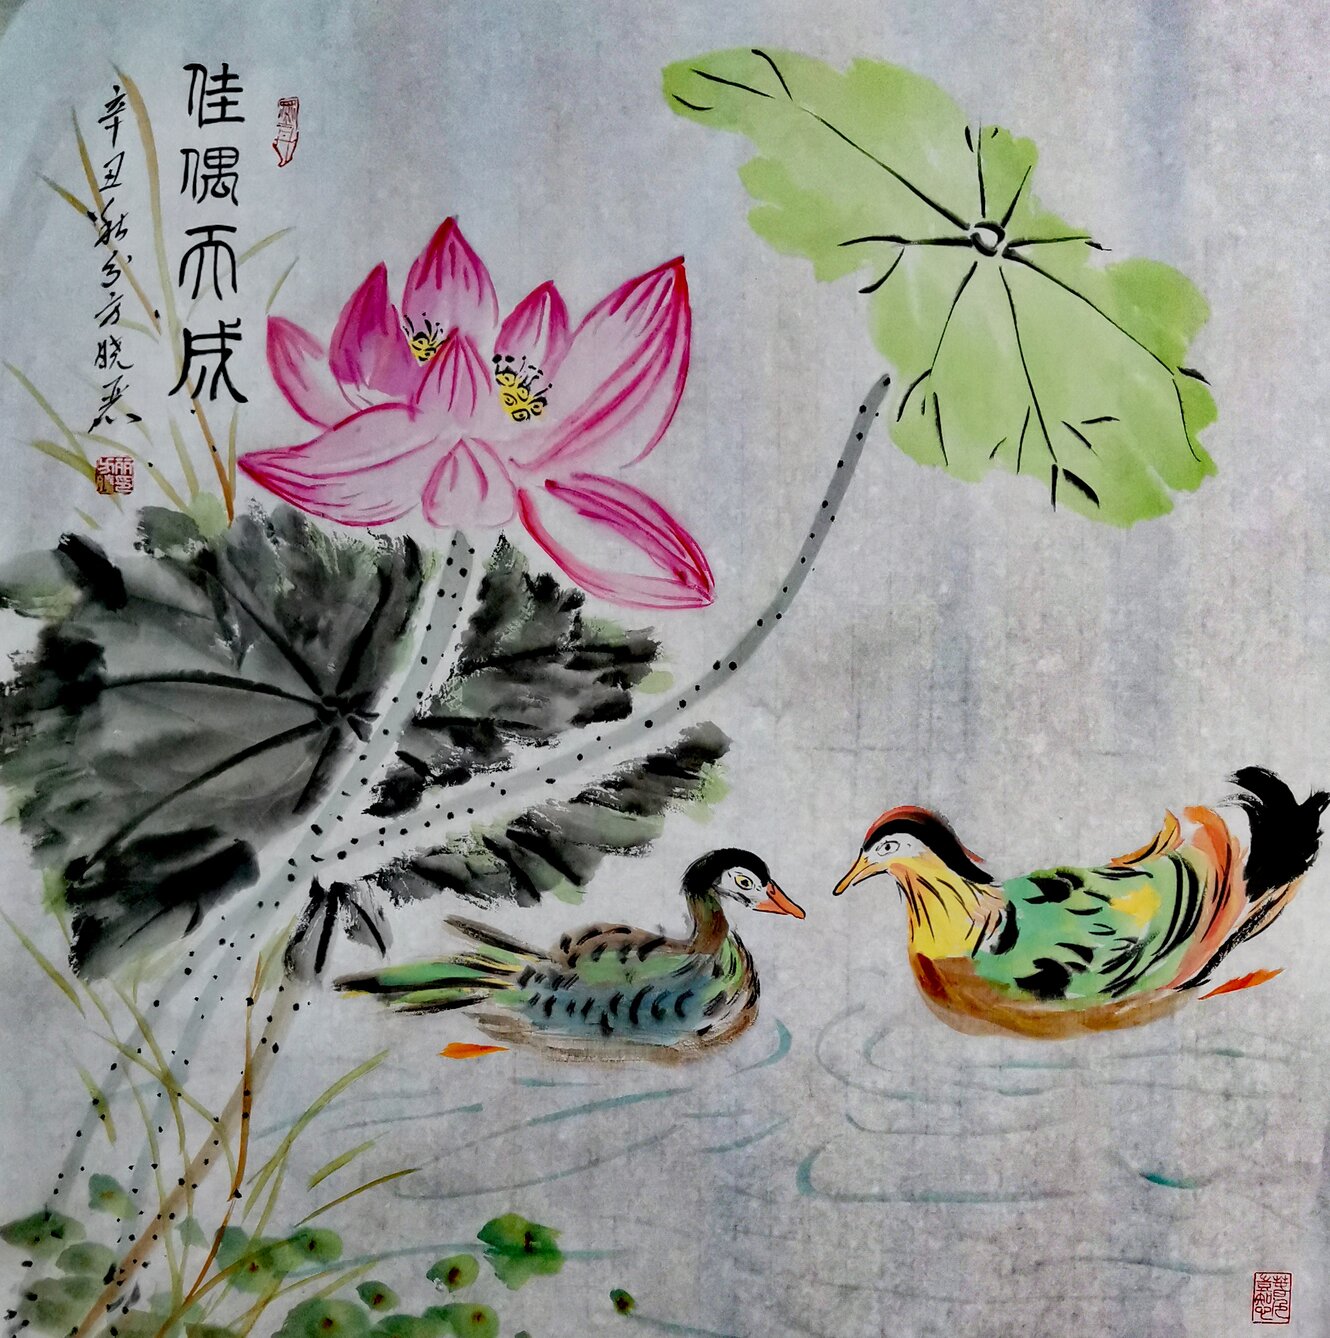 佳偶天成
辛丑秋分方晓